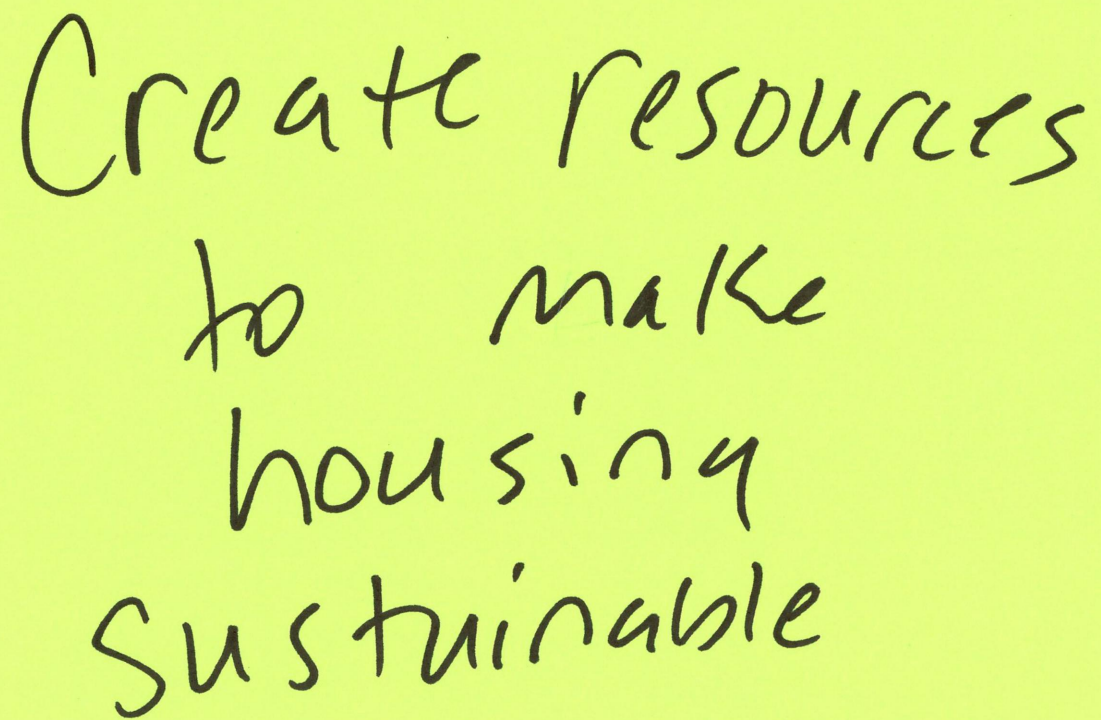 Create resources
to make
housing
sustainable